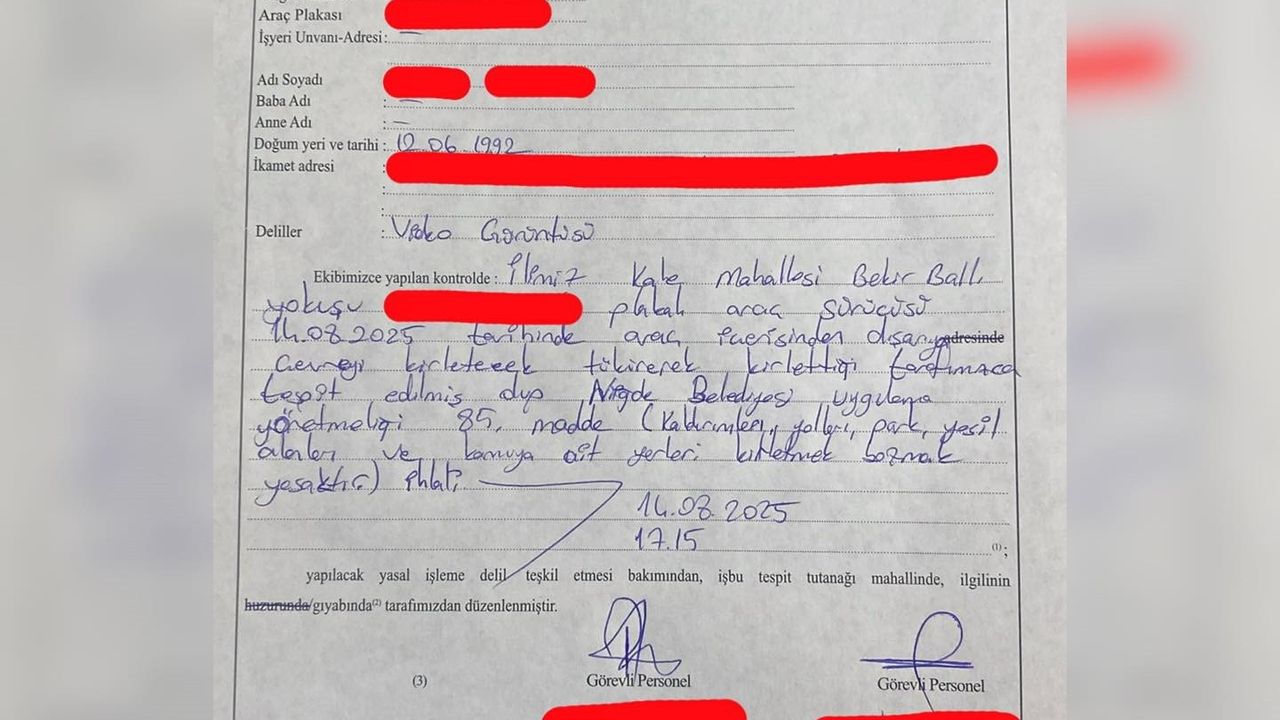 Araç Plakası
İşyeri Unvanı-Adresi:
Adı Soyadı
Baba Adı : —
Anne Adı : —
Doğum yeri ve tarihi : 12.06.1992
İkamet adresi :
Deliller : Video Görüntüsü
Ekibimizce yapılan kontrolde : İlimiz Kale Mahallesi Bekir Ballı
yokuşu plakalı araç sürücüsü
14.08.2025 tarihinde araç içerisinden dışarıya adresinde
çevreyi kirletecek tükürerek kirlettiği tarafımızca
tespit edilmiş olup Niğde Belediyesi uygulama
yönetmeliği 85. madde (Kaldırımları, yolları, park, yeşil
alanları ve kamuya ait yerleri kirletmek bozmak
yasaktır.) ihlali
14.08.2025
17.15
(1) ;
yapılacak yasal işleme delil teşkil etmesi bakımından, işbu tespit tutanağı mahallinde, ilgilinin
huzurunda/gıyabında(2) tarafımızdan düzenlenmiştir.
(3) Görevli Personel Görevli Personel